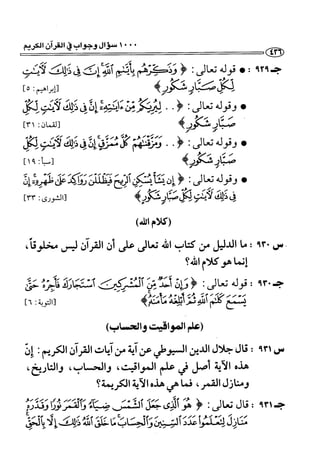 ١٠٠٠ سؤال وجواب في القرآن الكريم
٤٣٦
جـ ٩٢٩ : • قوله تعالى : ﴿ وَذَكِّرْهُم بِأَيَّىٰمِ ٱللَّهِ إِنَّ فِى ذَٰلِكَ لَآيَٰتٍ
لِّكُلِّ صَبَّارٍ شَكُورٍ ﴾ [إبراهيم: ٥]
• وقوله تعالى : ﴿ . . لِيُرِيَكُم مِّنْ ءَايَٰتِهِۦٓ إِنَّ فِى ذَٰلِكَ لَآيَٰتٍ لِّكُلِّ
صَبَّارٍ شَكُورٍ ﴾ [لقمان: ٣١]
• وقوله تعالى : ﴿ . . وَمَزَّقْنَٰهُمْ كُلَّ مُمَزَّقٍ إِنَّ فِى ذَٰلِكَ لَآيَٰتٍ لِّكُلِّ
صَبَّارٍ شَكُورٍ ﴾ [سبأ: ١٩]
• وقوله تعالى : ﴿ إِن يَشَأْ يُسْكِنِ ٱلرِّيحَ فَيَظْلَلْنَ رَوَاكِدَ عَلَىٰ ظَهْرِهِۦٓ إِنَّ
فِى ذَٰلِكَ لَآيَٰتٍ لِّكُلِّ صَبَّارٍ شَكُورٍ ﴾ [الشورى: ٣٣]
(كلام الله)
س ٩٣٠ : ما الدليل من كتاب الله تعالى على أن القرآن ليس مخلوقاً،
إنما هو كلام الله؟
جـ ٩٣٠ : قوله تعالى : ﴿ وَإِنْ أَحَدٌ مِّنَ ٱلْمُشْرِكِينَ ٱسْتَجَارَكَ فَأَجِرْهُ حَتَّىٰ
يَسْمَعَ كَلَٰمَ ٱللَّهِ ثُمَّ أَبْلِغْهُ مَأْمَنَهُۥ ﴾ [التوبة: ٦]
(علم المواقيت والحساب)
س ٩٣١ : قال جلال الدين السيوطي عن آية من آيات القرآن الكريم : إنّ
هذه الآية أصل في علم المواقيت، والحساب، والتاريخ،
ومنازل القمر، فما هي هذه الآية الكريمة؟
جـ ٩٣١ : قال تعالى : ﴿ هُوَ ٱلَّذِى جَعَلَ ٱلشَّمْسَ ضِيَآءً وَٱلْقَمَرَ نُورًا وَقَدَّرَهُۥ
مَنَازِلَ لِتَعْلَمُوا۟ عَدَدَ ٱلسِّنِينَ وَٱلْحِسَابَ مَا خَلَقَ ٱللَّهُ ذَٰلِكَ إِلَّا بِٱلْحَقِّ